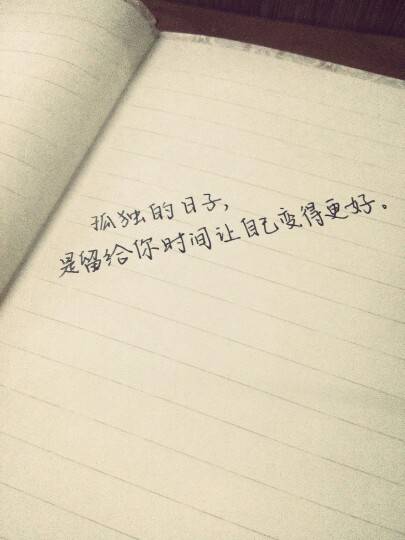 孤独的日子，
是留给你时间让自己变得更好。